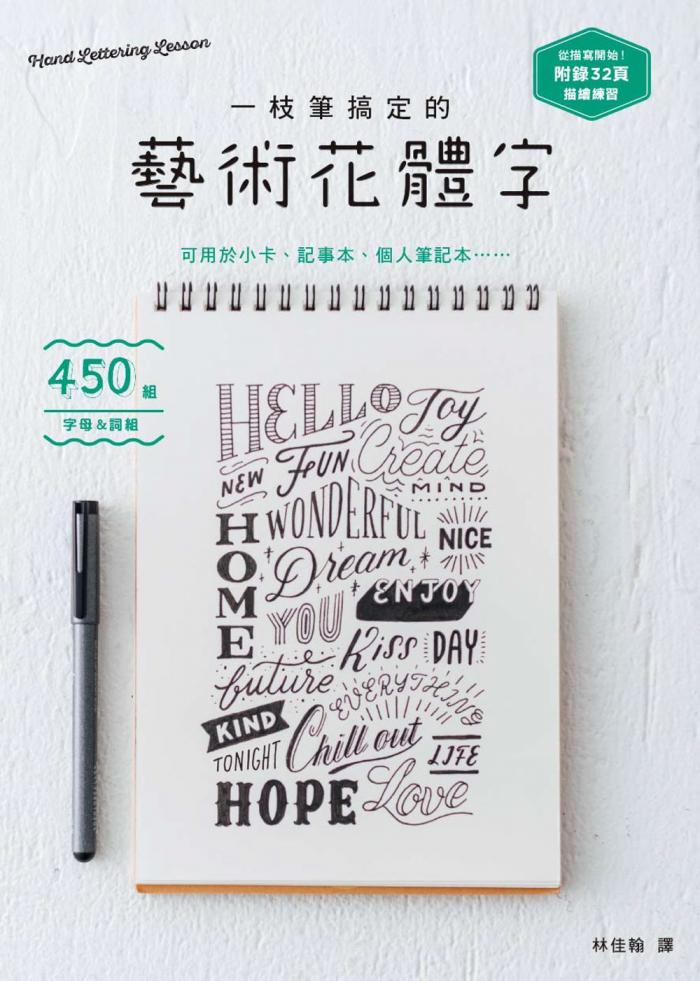 Hand Lettering Lesson
從描寫開始！
附錄32頁
描繪練習
一枝筆搞定的
藝術花體字
可用於小卡、記事本、個人筆記本⋯⋯
450組
字母&詞組
HELLO Joy
NEW FUN Create
MIND
HOME
WONDERFUL
NICE
Dream
ENJOY
YOU
Kiss DAY
future
EVERYTHING
KIND
TONIGHT
Chill out
LIFE
HOPE Love
林佳翰 譯